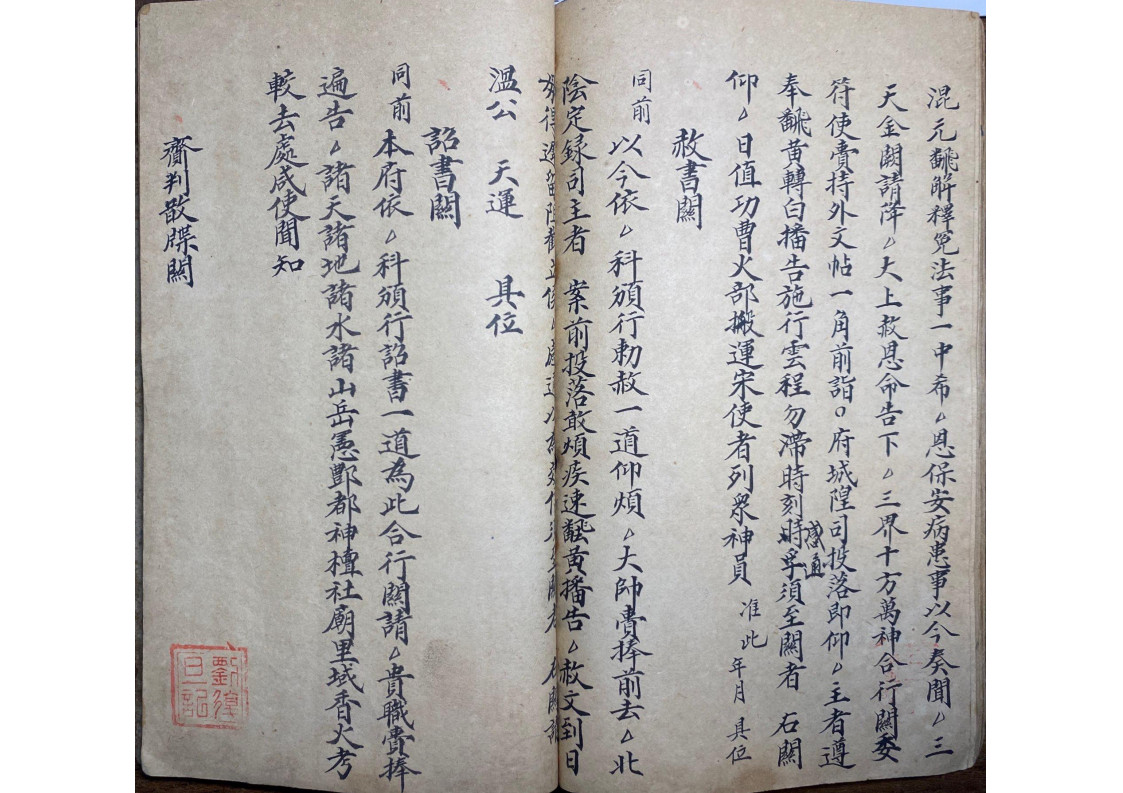 混元飜解釋冤法事一中希ム恩保安病患事以今奏聞ム三
天金闕請降ム大上赦恩命告下ム三界十方萬神合行關委
符使賷持外文帖一角前詣○府城隍司投落即仰ム主者遵
奉飜黄轉白播告施行雲程勿滯時刻時孚須至關者 右關
感通
仰ム日值功曹火部搬運宋使者列衆神員 准此 年月 具位
赦書關
同前 以今依ム科頒行勅赦一道仰煩ム大帥賷捧前去ム北
陰定録司主者 案前投落敢煩疾速飜黄播告ム赦文到日
溫公 天運 具位
詔書關
同前 本府依ム科頒行詔書一道為此合行關請ム貴職賷捧
遍告ム諸天諸地諸水諸山岳慿酆都神壇社廟里域香火考
較去處咸使聞知
齎判散牒關
劉
記